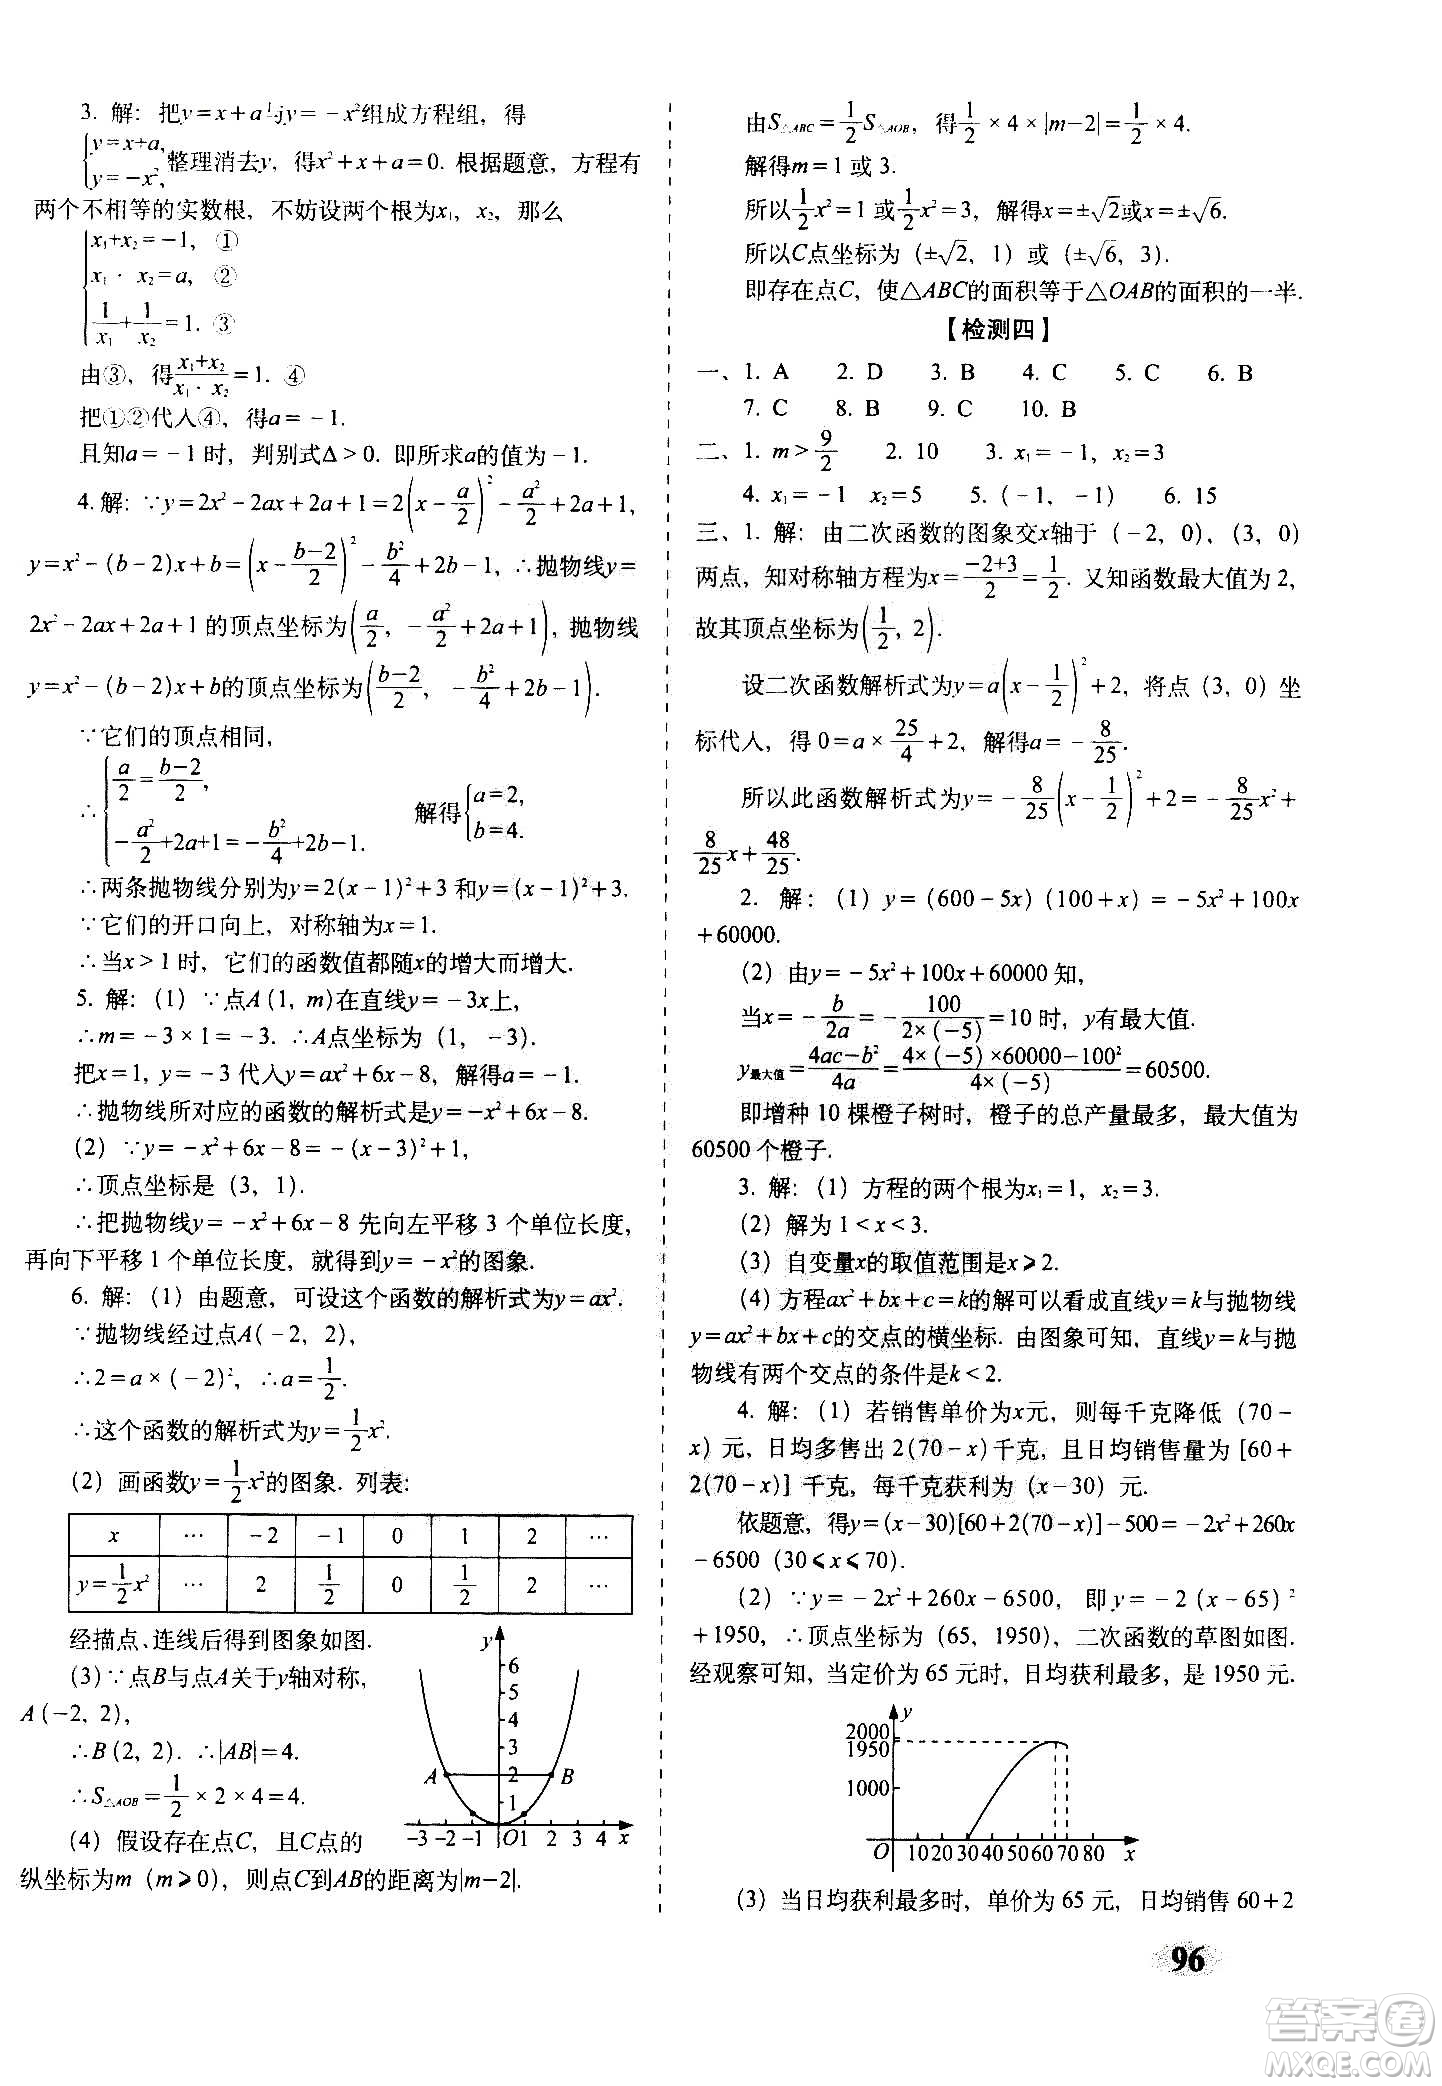 3. 解：把y=x+a与y=-x²组成方程组，得
{y=x+a, y=-x², 整理消去y，得x²+x+a=0. 根据题意，方程有
两个不相等的实数根，不妨设两个根为x₁，x₂，那么
{x₁+x₂=-1，①
x₁·x₂=a，②
1/x₁+1/x₂=1. ③
由③，得(x₁+x₂)/(x₁·x₂)=1. ④
把①②代入④，得a=-1.
且知a=-1时，判别式Δ>0. 即所求a的值为-1.
4. 解：∵y=2x²-2ax+2a+1=2(x-a/2)²-a²/2+2a+1,
y=x²-(b-2)x+b=(x-(b-2)/2)²-b²/4+2b-1，∴抛物线y=
2x²-2ax+2a+1的顶点坐标为(a/2，-a²/2+2a+1)，抛物线
y=x²-(b-2)x+b的顶点坐标为((b-2)/2，-b²/4+2b-1).
∵它们的顶点相同，
∴{a/2=(b-2)/2, -a²/2+2a+1=-b²/4+2b-1. 解得{a=2, b=4.
∴两条抛物线分别为y=2(x-1)²+3和y=(x-1)²+3.
∵它们的开口向上，对称轴为x=1.
∴当x>1时，它们的函数值都随x的增大而增大.
5. 解：（1）∵点A(1, m)在直线y=-3x上，
∴m=-3×1=-3. ∴A点坐标为（1，-3）.
把x=1, y=-3代入y=ax²+6x-8，解得a=-1.
∴抛物线所对应的函数的解析式是y=-x²+6x-8.
（2）∵y=-x²+6x-8=-(x-3)²+1，
∴顶点坐标是（3，1）.
∴把抛物线y=-x²+6x-8先向左平移3个单位长度，
再向下平移1个单位长度，就得到y=-x²的图象.
6. 解：（1）由题意，可设这个函数的解析式为y=ax².
∵抛物线经过点A(-2，2)，
∴2=a×(-2)²，∴a=1/2.
∴这个函数的解析式为y=1/2x².
（2）画函数y=1/2x²的图象. 列表：
x … -2 -1 0 1 2 …
y=1/2x² … 2 1/2 0 1/2 2 …
经描点、连线后得到图象如图.
（3）∵点B与点A关于y轴对称，
A（-2，2），
∴B（2，2）. ∴|AB|=4.
∴S△AOB=1/2×2×4=4.
（4）假设存在点C，且C点的
纵坐标为m（m⩾0），则点C到AB的距离为|m-2|.
y
6
5
4
3
A 2 B
1
-3 -2 -1 O 1 2 3 4 x
由S△ABC=1/2S△AOB，得1/2×4×|m-2|=1/2×4.
解得m=1或3.
所以1/2x²=1或1/2x²=3，解得x=±√2或x=±√6.
所以C点坐标为（±√2，1）或（±√6，3）.
即存在点C，使△ABC的面积等于△OAB的面积的一半.
【检测四】
一、1. A 2. D 3. B 4. C 5. C 6. B
7. C 8. B 9. C 10. B
二、1. m>9/2 2. 10 3. x₁=-1，x₂=3
4. x₁=-1 x₂=5 5.（-1，-1） 6. 15
三、1. 解：由二次函数的图象交x轴于（-2，0），（3，0）
两点，知对称轴方程为x=(-2+3)/2=1/2. 又知函数最大值为2，
故其顶点坐标为(1/2, 2).
设二次函数解析式为y=a(x-1/2)²+2，将点（3，0）坐
标代入，得0=a×25/4+2，解得a=-8/25.
所以此函数解析式为y=-8/25(x-1/2)²+2=-8/25x²+
8/25x+48/25.
2. 解：（1）y=（600-5x）（100+x）=-5x²+100x
+60000.
（2）由y=-5x²+100x+60000知，
当x=-b/2a=-100/(2×(-5))=10时，y有最大值.
y最大值=(4ac-b²)/4a=(4×(-5)×60000-100²)/(4×(-5))=60500.
即增种10棵橙子树时，橙子的总产量最多，最大值为
60500个橙子.
3. 解：（1）方程的两个根为x₁=1，x₂=3.
（2）解为1<x<3.
（3）自变量x的取值范围是x⩾2.
（4）方程ax²+bx+c=k的解可以看成直线y=k与抛物线
y=ax²+bx+c的交点的横坐标. 由图象可知，直线y=k与抛
物线有两个交点的条件是k<2.
4. 解：（1）若销售单价为x元，则每千克降低（70-
x）元，日均多售出2(70-x)千克，且日均销售量为[60+
2(70-x)]千克，每千克获利为（x-30）元.
依题意，得y=(x-30)[60+2(70-x)]-500=-2x²+260x
-6500（30⩽x⩽70）.
（2）∵y=-2x²+260x-6500，即y=-2（x-65）²
+1950，∴顶点坐标为（65，1950），二次函数的草图如图.
经观察可知，当定价为65元时，日均获利最多，是1950元.
y
2000
1950
1000
O 10 20 30 40 50 60 70 80 x
（3）当日均获利最多时，单价为65元，日均销售60+2
96
答案圈
MXQE.COM